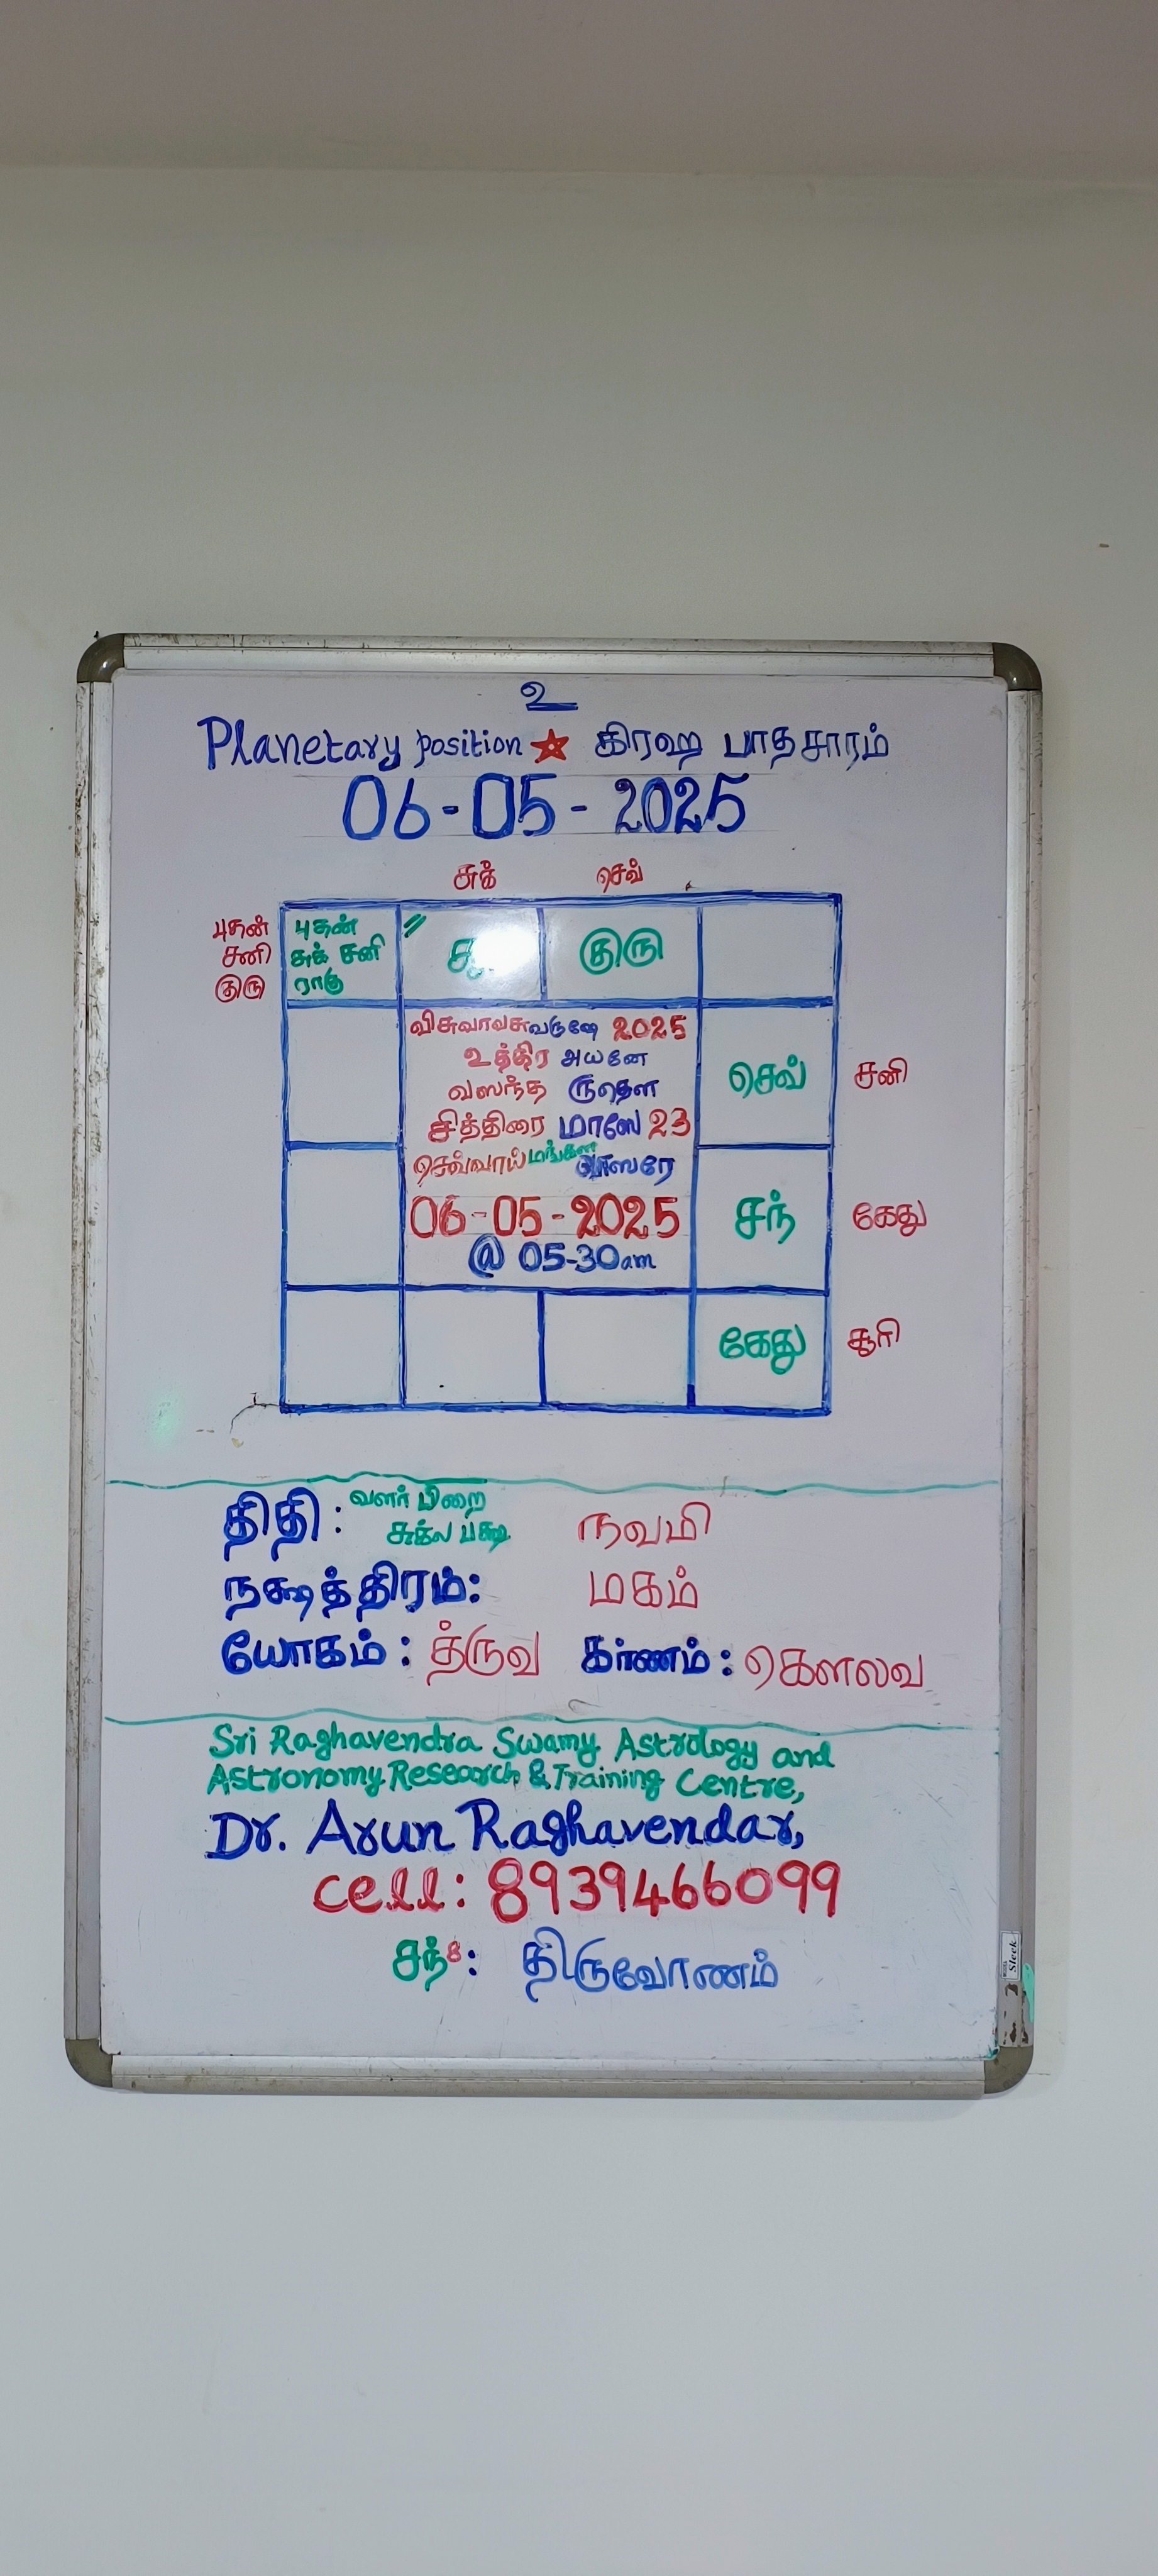 உ
Planetary position கிரஹ பாதசாரம்
06-05-2025
சுக் செவ்
புதன்
சனி
குரு
புதன்
சுக் சனி
ராகு
"
குரு
விசுவாவசுவருஷே 2025
உத்திர அயனே
வஸந்த ருதௌ
சித்திரை மாஸே 23
செவ்வாய் மங்கள வாஸரே
06-05-2025
@ 05-30am
செவ்
சனி
சந்
கேது
கேது
சூரி
திதி: வளர் பிறை
சுக்ல பக்ஷ நவமி
நக்ஷத்திரம்: மகம்
யோகம்: த்ருவ கர்ணம்: கௌலவ
Sri Raghavendra Swamy Astrology and
Astronomy Research & Training Centre,
Dr. Arun Raghavendar,
cell: 8939466099
சந்8: திருவோணம்
Sleek